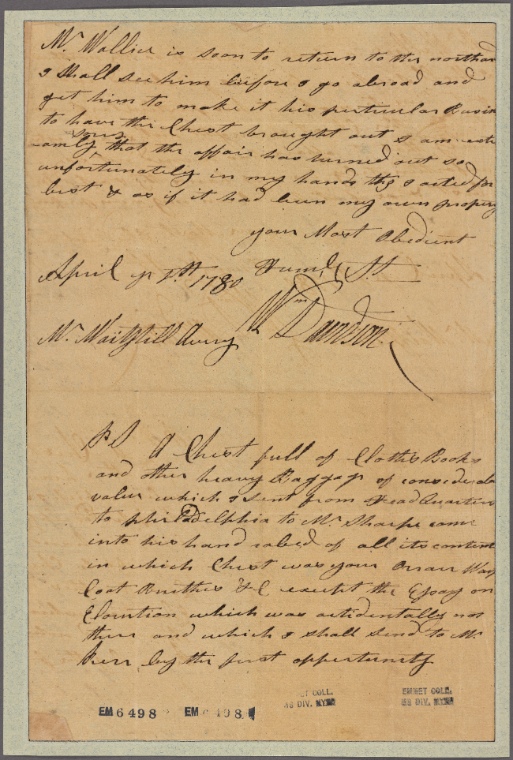 Mr. Wallice is soon to return to the northard
I shall see him before I go abroad and
get him to make it his perticular Busin
to have the Chest brought out I am extr
eamly sorry that the affair has turned out so
unfortunately in my hands tho I acted for
best & as if it had been my own propery
your Most Obedient
April 1780 Huml. St.
Wm Davidson
Mr. Waitstill Avery
PS A Chest full of Cloths Books
and other heavy Baggage of considerale
value which I sent from Head Quarters
to philadelphia to Mr Sharpe came
into his hand robed of all its content
in which Chest was your
Coat Breethes &C except the Essay on
Elocution which was accidentally not
there and which I shall send to Mr
by the first oppertunity
EM6498 EM 498
ET COLL. EMMET COLL.
SS DIV. NYPL MSS DIV. NYPL